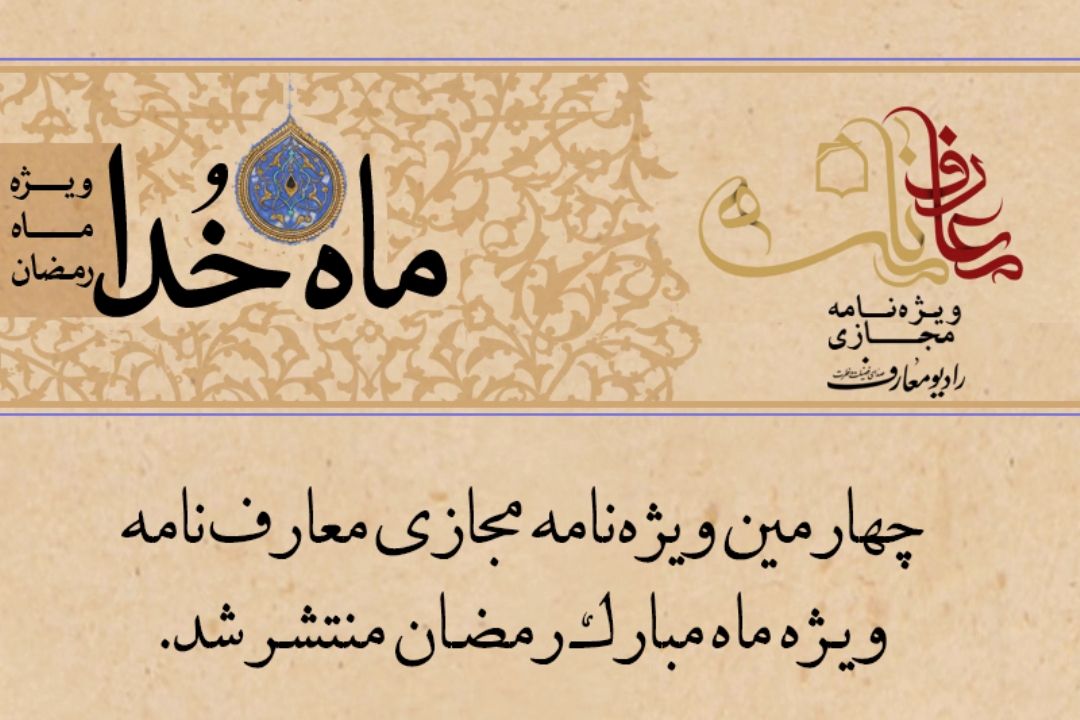 معارف‌نامه
ویژه‌نامه
مجازی
رادیو معارف صدای فضیلت و فطرت
ماه خُدا و
ویژه
ماه
رمضان
چهارمین ویژه‌نامه مجازی معارف‌نامه
ویژه ماه مبارک رمضان منتشر شد.